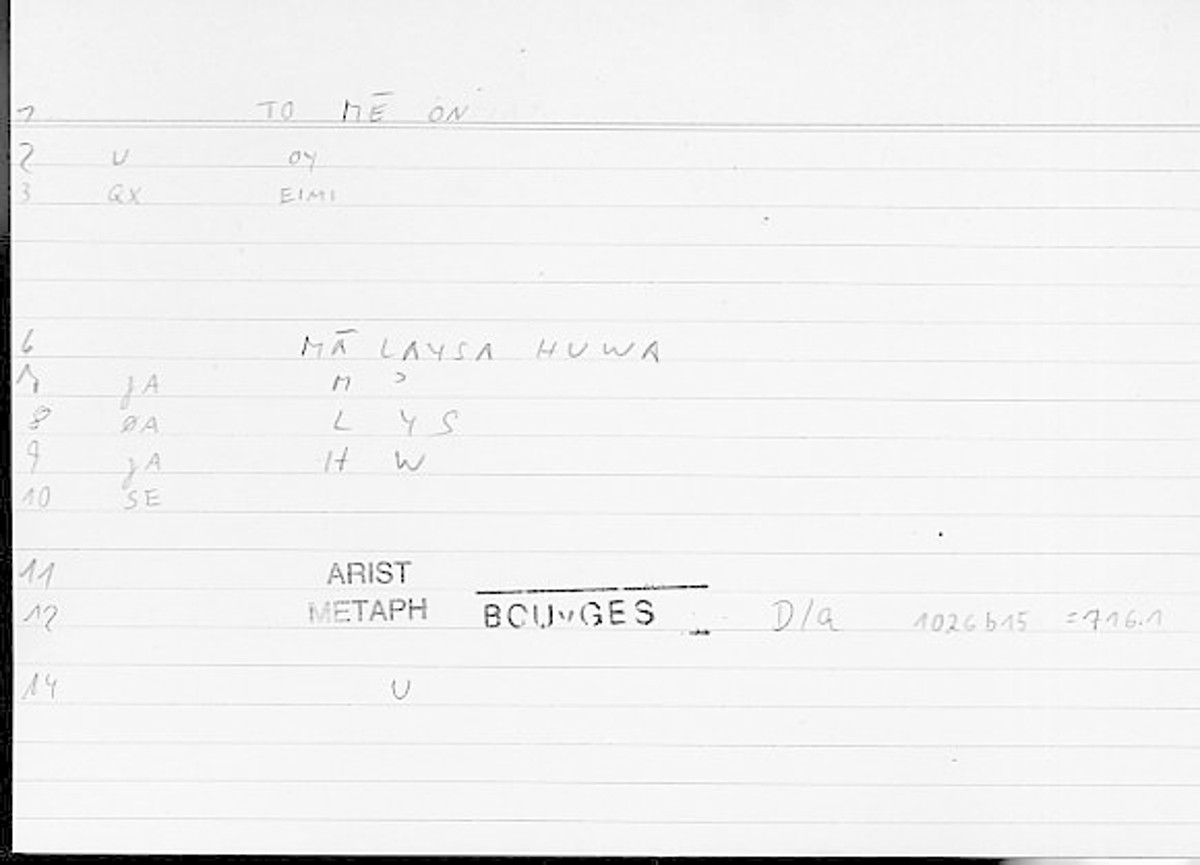 1 TO MĒ ON
2 U OY
3 QX EIMI
6 MĀ LAYSA HUWA
7 jA M ɔ
8 ØA L Y S
9 jA H W
10 SE
11 ARIST
12 METAPH BOUYGES D/a 1026b15 =716.1
14 U